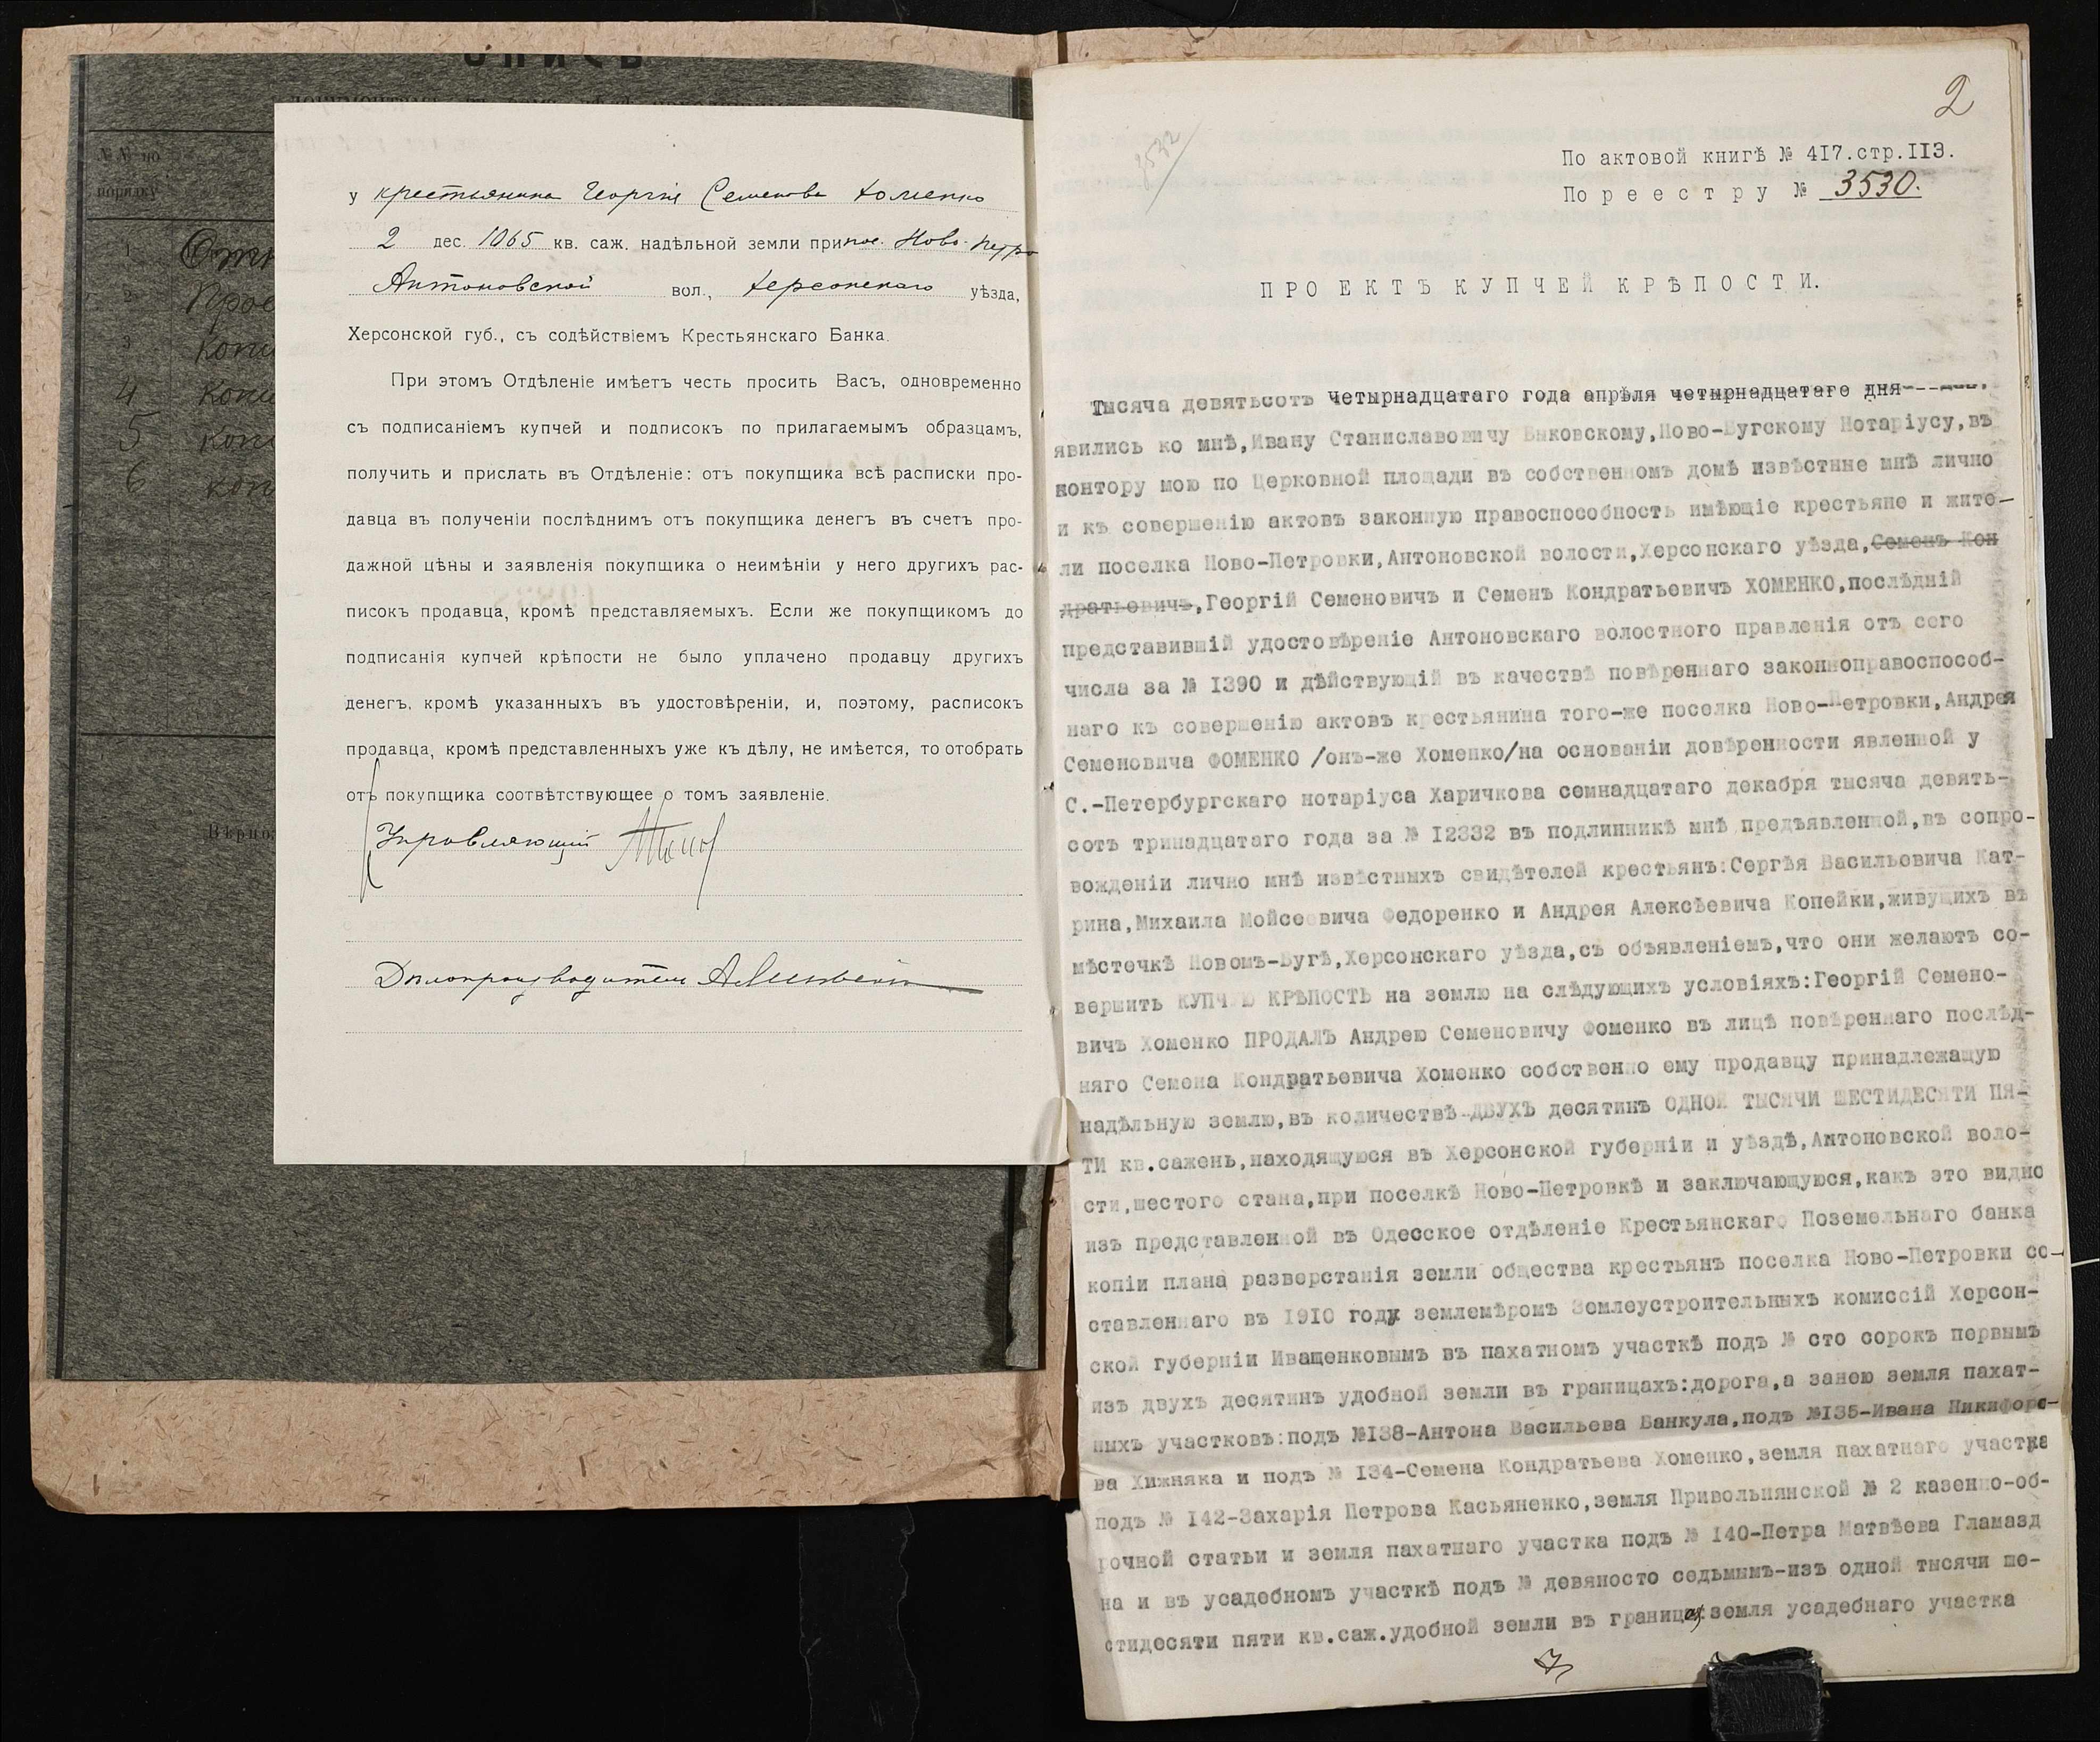 ОПИСЬ
№№ по
порядку
1
2
3
4
5
6
Вѣрно:
у крестьянина Георгія Семенова Хоменко
2 дес. 1065 кв. саж. надѣльной земли при пос. Ново-Петро
Антоновской вол., Херсонскаго уѣзда,
Херсонской губ., съ содѣйствіемъ Крестьянскаго Банка.
При этомъ Отдѣленіе имѣетъ честь просить Васъ, одновременно
съ подписаніемъ купчей и подписокъ по прилагаемымъ образцамъ,
получить и прислать въ Отдѣленіе: отъ покупщика всѣ расписки про-
давца въ полученіи послѣднимъ отъ покупщика денегъ въ счетъ про-
дажной цѣны и заявленія покупщика о неимѣніи у него другихъ рас-
писокъ продавца, кромѣ представляемыхъ. Если же покупщикомъ до
подписанія купчей крѣпости не было уплачено продавцу другихъ
денегъ, кромѣ указанныхъ въ удостовѣреніи, и, поэтому, расписокъ
продавца, кромѣ представленныхъ уже къ дѣлу, не имѣется, то отобрать
отъ покупщика соотвѣтствующее о томъ заявленіе.
Управляющій
Дѣлопроизводитель
2
2532
По актовой книгѣ № 4I7.стр.II3.
По реестру № 3530.
ПРОЕКТЪ КУПЧЕЙ КРѢПОСТИ.
Тысяча девятьсотъ четырнадцатаго года апрѣля четырнадцатаго дня
явились ко мнѣ,Ивану Станиславовичу Быковскому,Ново-Бугскому Нотаріусу,въ
контору мою по Церковной площади въ собственномъ домѣ извѣстные мнѣ лично
и къ совершенію актовъ законную правоспособность имѣющіе крестьяне и жите-
ли поселка Ново-Петровки,Антоновской волости,Херсонскаго уѣзда,Семенъ Кон
дратьевичъ,Георгій Семеновичъ и Семенъ Кондратьевичъ ХОМЕНКО,послѣдній
представившій удостовѣреніе Антоновскаго волостного правленія отъ сего
числа за № I390 и дѣйствующій въ качествѣ повѣреннаго законноправоспособ-
наго къ совершенію актовъ крестьянина того-же поселка Ново-Петровки,Андрея
Семеновича ФОМЕНКО /онъ-же Хоменко/на основаніи довѣренности явленной у
С.-Петербургскаго нотаріуса Харичкова семнадцатаго декабря тысяча девять-
сотъ тринадцатаго года за № I2332 въ подлинникѣ мнѣ предъявленной,въ сопро-
вожденіи лично мнѣ извѣстныхъ свидѣтелей крестьянъ:Сергѣя Васильовича Кат-
рина,Михаила Мойсеевича Федоренко и Андрея Алексѣевича Копейки,живущихъ въ
мѣстечкѣ Новомъ-Бугѣ,Херсонскаго уѣзда,съ объявленіемъ,что они желаютъ со-
вершить КУПЧУЮ КРѢПОСТЬ на землю на слѣдующихъ условіяхъ:Георгій Семено-
вичъ Хоменко ПРОДАЛЪ Андрею Семеновичу Фоменко въ лицѣ повѣреннаго послѣд-
няго Семена Кондратьевича Хоменко собственно ему продавцу принадлежащую
надѣльную землю,въ количествѣ-ДВУХЪ десятинъ ОДНОЙ ТЫСЯЧИ ШЕСТИДЕСЯТИ ПЯ-
ТИ кв.сажень,находящуюся въ Херсонской губерніи и уѣздѣ,Антоновской воло-
сти,шестого стана,при поселкѣ Ново-Петровкѣ и заключающуюся,какъ это видно
изъ представленной въ Одесское отдѣленіе Крестьянскаго Поземельнаго банка
копіи плана разверстанія земли общества крестьянъ поселка Ново-Петровки со-
ставленнаго въ I9I0 году землемѣромъ Землеустроительныхъ комиссій Херсон-
ской губерніи Иващенковымъ въ пахатномъ участкѣ подъ № сто сорокъ первымъ
изъ двухъ десятинъ удобной земли въ границахъ:дорога,а занею земля пахат-
ныхъ участковъ:подъ №I38-Антона Васильева Банкула,подъ №I35-Ивана Никифоро-
ва Хижняка и подъ № I34-Семена Кондратьева Хоменко,земля пахатнаго участка
подъ № I42-Захарія Петрова Касьяненко,земля Привольнянской № 2 казенно-об-
рочной статьи и земля пахатнаго участка подъ № I40-Петра Матвѣева Гламазд
на и въ усадебномъ участкѣ подъ № девяносто седьмымъ-изъ одной тысячи ше-
стидесяти пяти кв.саж.удобной земли въ границахъ земля усадебнаго участка